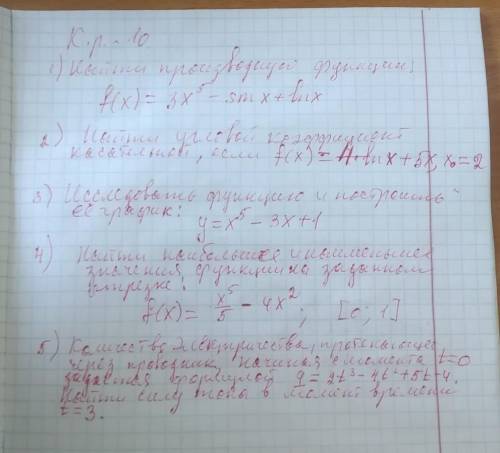 К.р. - 10
1) Найти производную функции:
f(x) = 3x⁵ - sin x + ln x
2) Найти угловой коэффициент
касательной, если f(x) = ln x + 5x, x₀ = 2
3) Исследовать функцию и построить
её график:
y = x⁵ - 3x + 1
4) Найти наибольшее и наименьшее
значения функции на заданном
отрезке:
f(x) = x⁵/5 - 4x² ; [0; 1]
5) Количество электричества, протекающее
через проводник, начиная с момента t=0
задаётся формулой q = 2t³ - 4t² + 5t - 4.
Найти силу тока в момент времени
t = 3.